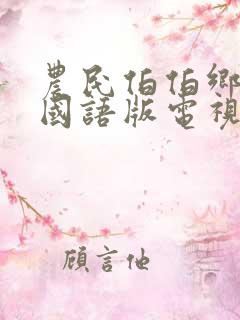 農民伯伯鄉
國語版電視
顧言他